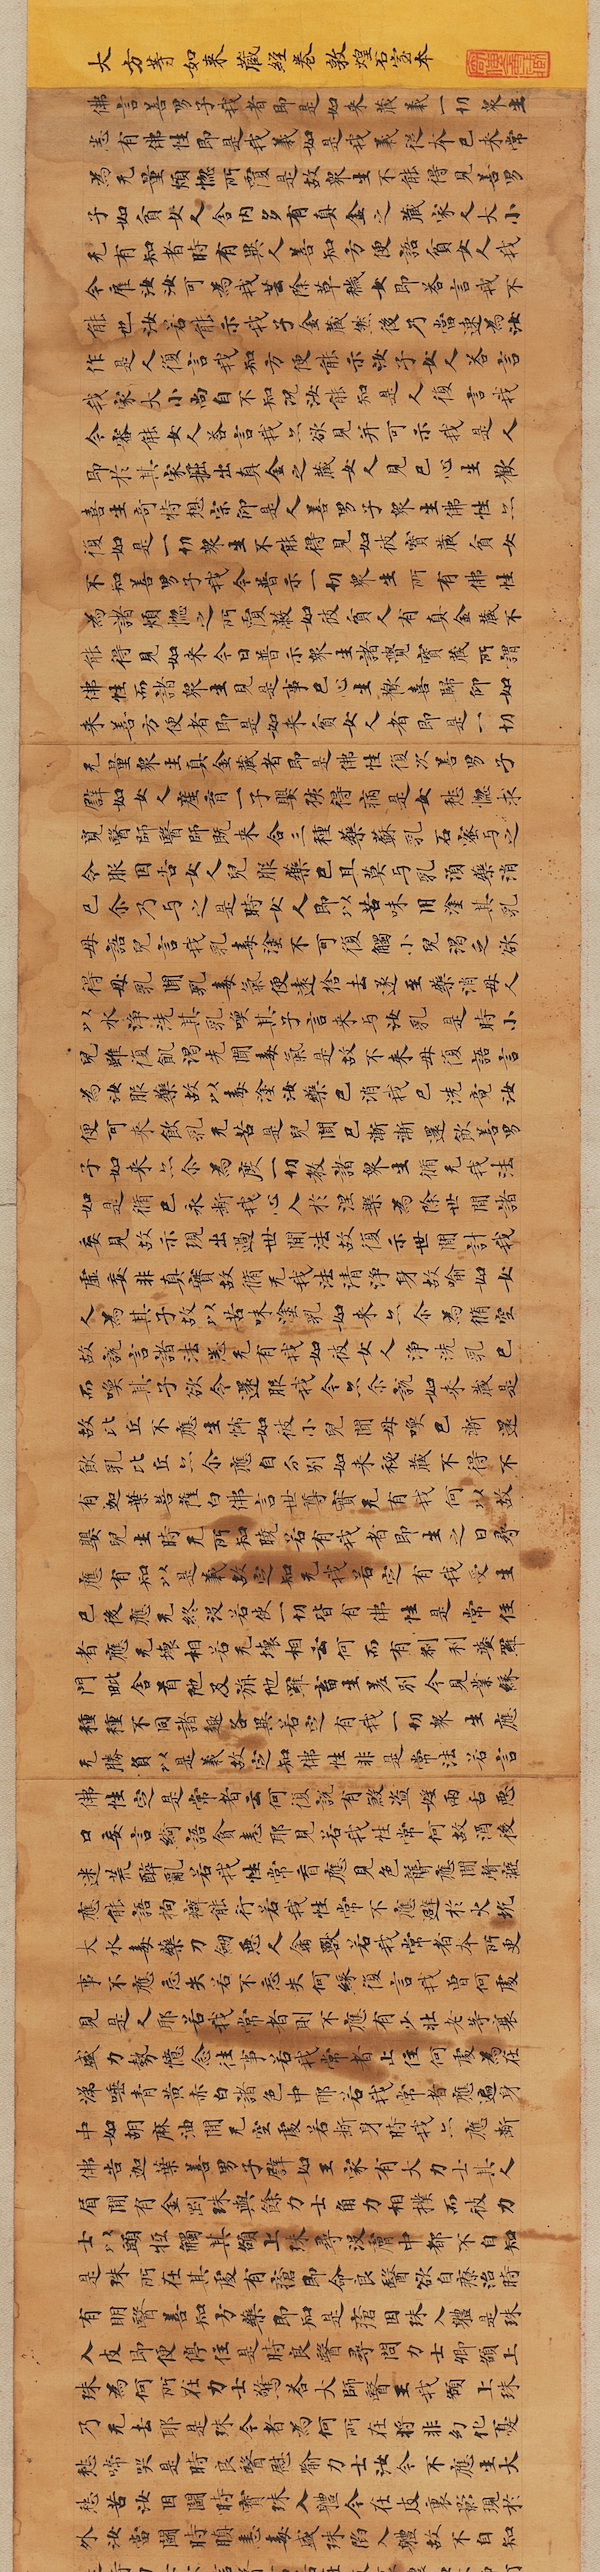 大方等如來藏經卷敦煌石室本
佛言善男子我者即是如來藏義一切眾生
悉有佛性即是我義如是我義從本已來常
為无量煩惱所覆是故眾生不能得見善男
子如貧女人舍內多有真金之藏家人大小
无有知者時有異人善知方便語貧女人我
今雇汝汝可為我芸除草穢女即答言我不
能也汝若能示我子金藏然後乃當速為汝
作是人復言我知方便能示汝子女人答言
我家大小尚自不知況汝能知是人復言我
今審能女人答言我亦欲見并可示我是人
即於其家掘出真金之藏女人見已心生歡
喜生奇特想宗仰是人善男子眾生佛性亦
復如是一切眾生不能得見如彼寶藏貧女
不知善男子我今普示一切眾生所有佛性
為諸煩惱之所覆蔽如彼貧人有真金藏不
能得見如來今日普示眾生諸覺寶藏所謂
佛性而諸眾生見是事已心生歡喜歸仰如
來善方便者即是如來貧女人者即是一切
无量眾生真金藏者即是佛性復次善男子
譬如女人產育一子嬰孩得病是女愁惱求
覓醫師醫師既來合三種藥蘇乳石蜜与之
令服因告女人兒服藥已且莫与乳須藥消
已尒乃与之是時女人即以苦味用塗其乳
母語兒言我乳毒塗不可復觸小兒渴乏欲
得母乳聞乳毒氣便遠捨去遂至藥消母人
以水淨洗其乳喚其子言來与汝乳是時小
兒雖復飢渴先聞毒氣是故不來母復語言
為汝服藥故以毒塗汝藥已消我已洗竟汝
便可來飲乳无苦是兒聞已漸漸還飲善男
子如來亦尒為度一切教諸眾生脩无我法
如是脩已永斷我心入於涅槃為除世間諸
妄見故示現出過世間法故復示世間計我
虛妄非真實故脩无我法清淨身故喻如女
人為其子故以苦味塗乳如來亦尒為脩空
故說言諸法悉无有我如彼女人淨洗乳已
而喚其子欲令還服我今亦尒說如來藏是
故比丘不應生怖如彼小兒聞母喚已漸還
飲乳比丘亦尒應自分別如來祕藏不得不
有迦葉菩薩白佛言世尊實无有我何以故
嬰兒生時无所知曉若有我者即生之日尋
應有知以是義故定知无我若定有我受生
已後應无終沒若使一切皆有佛性是常住
者應无壞相若无壞相云何而有剎利婆羅
門毗舍首陁及旃陁羅畜生差別今見業緣
種種不同諸趣各異若定有我一切眾生應
无勝負以是義故定知佛性非是常法若言
佛性定是常者云何復說有煞盜婬兩舌惡
口妄言綺語貪恚耶見若我性常何故酒後
迷荒醉亂若我性常盲應見色聾應聞聲瘂
應能語拘躄能行若我性常不應避於火坑
大水毒藥刀劍惡人禽獸若我常者本所更
事不應忘失若不忘失何緣復言我曾何處
見是人耶若我常者則不應有少壯老等衰
盛力勢憶念往事若我常者止住何處為在
涕唾青黃赤白諸色中耶若我常者應遍身
中如胡麻油間无空處若斷身時我亦應斷
佛告迦葉善男子譬如王家有大力士其人
眉間有金剛珠與餘力士角力相撲而彼力
士以頭牴觸其額上珠尋沒膚中都不自知
是珠所在其處有瘡即命良醫欲自療治時
有明醫善知方藥即知是瘡因珠入體是珠
入皮即便停住是時良醫尋問力士卿額上
珠為何所在力士驚答大師醫王我額上珠
乃无去耶是珠今者為何所在將非幻化憂
愁啼哭是時良醫慰喻力士汝今不應生大
愁苦汝因鬪時寶珠入體今在皮裏影現於
外汝當鬪時瞋恚毒盛珠陷入體故不自知